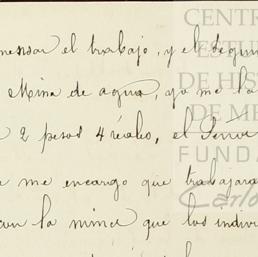 mensar el trabajo, y el segun
Mina de agua, yo me la
2 pesos 4 reales, el Señor
me encargo que trabajara
con la mina que los indivi
CENTR
ESTU
DE HIS
DE ME
FUNDA
Carlo